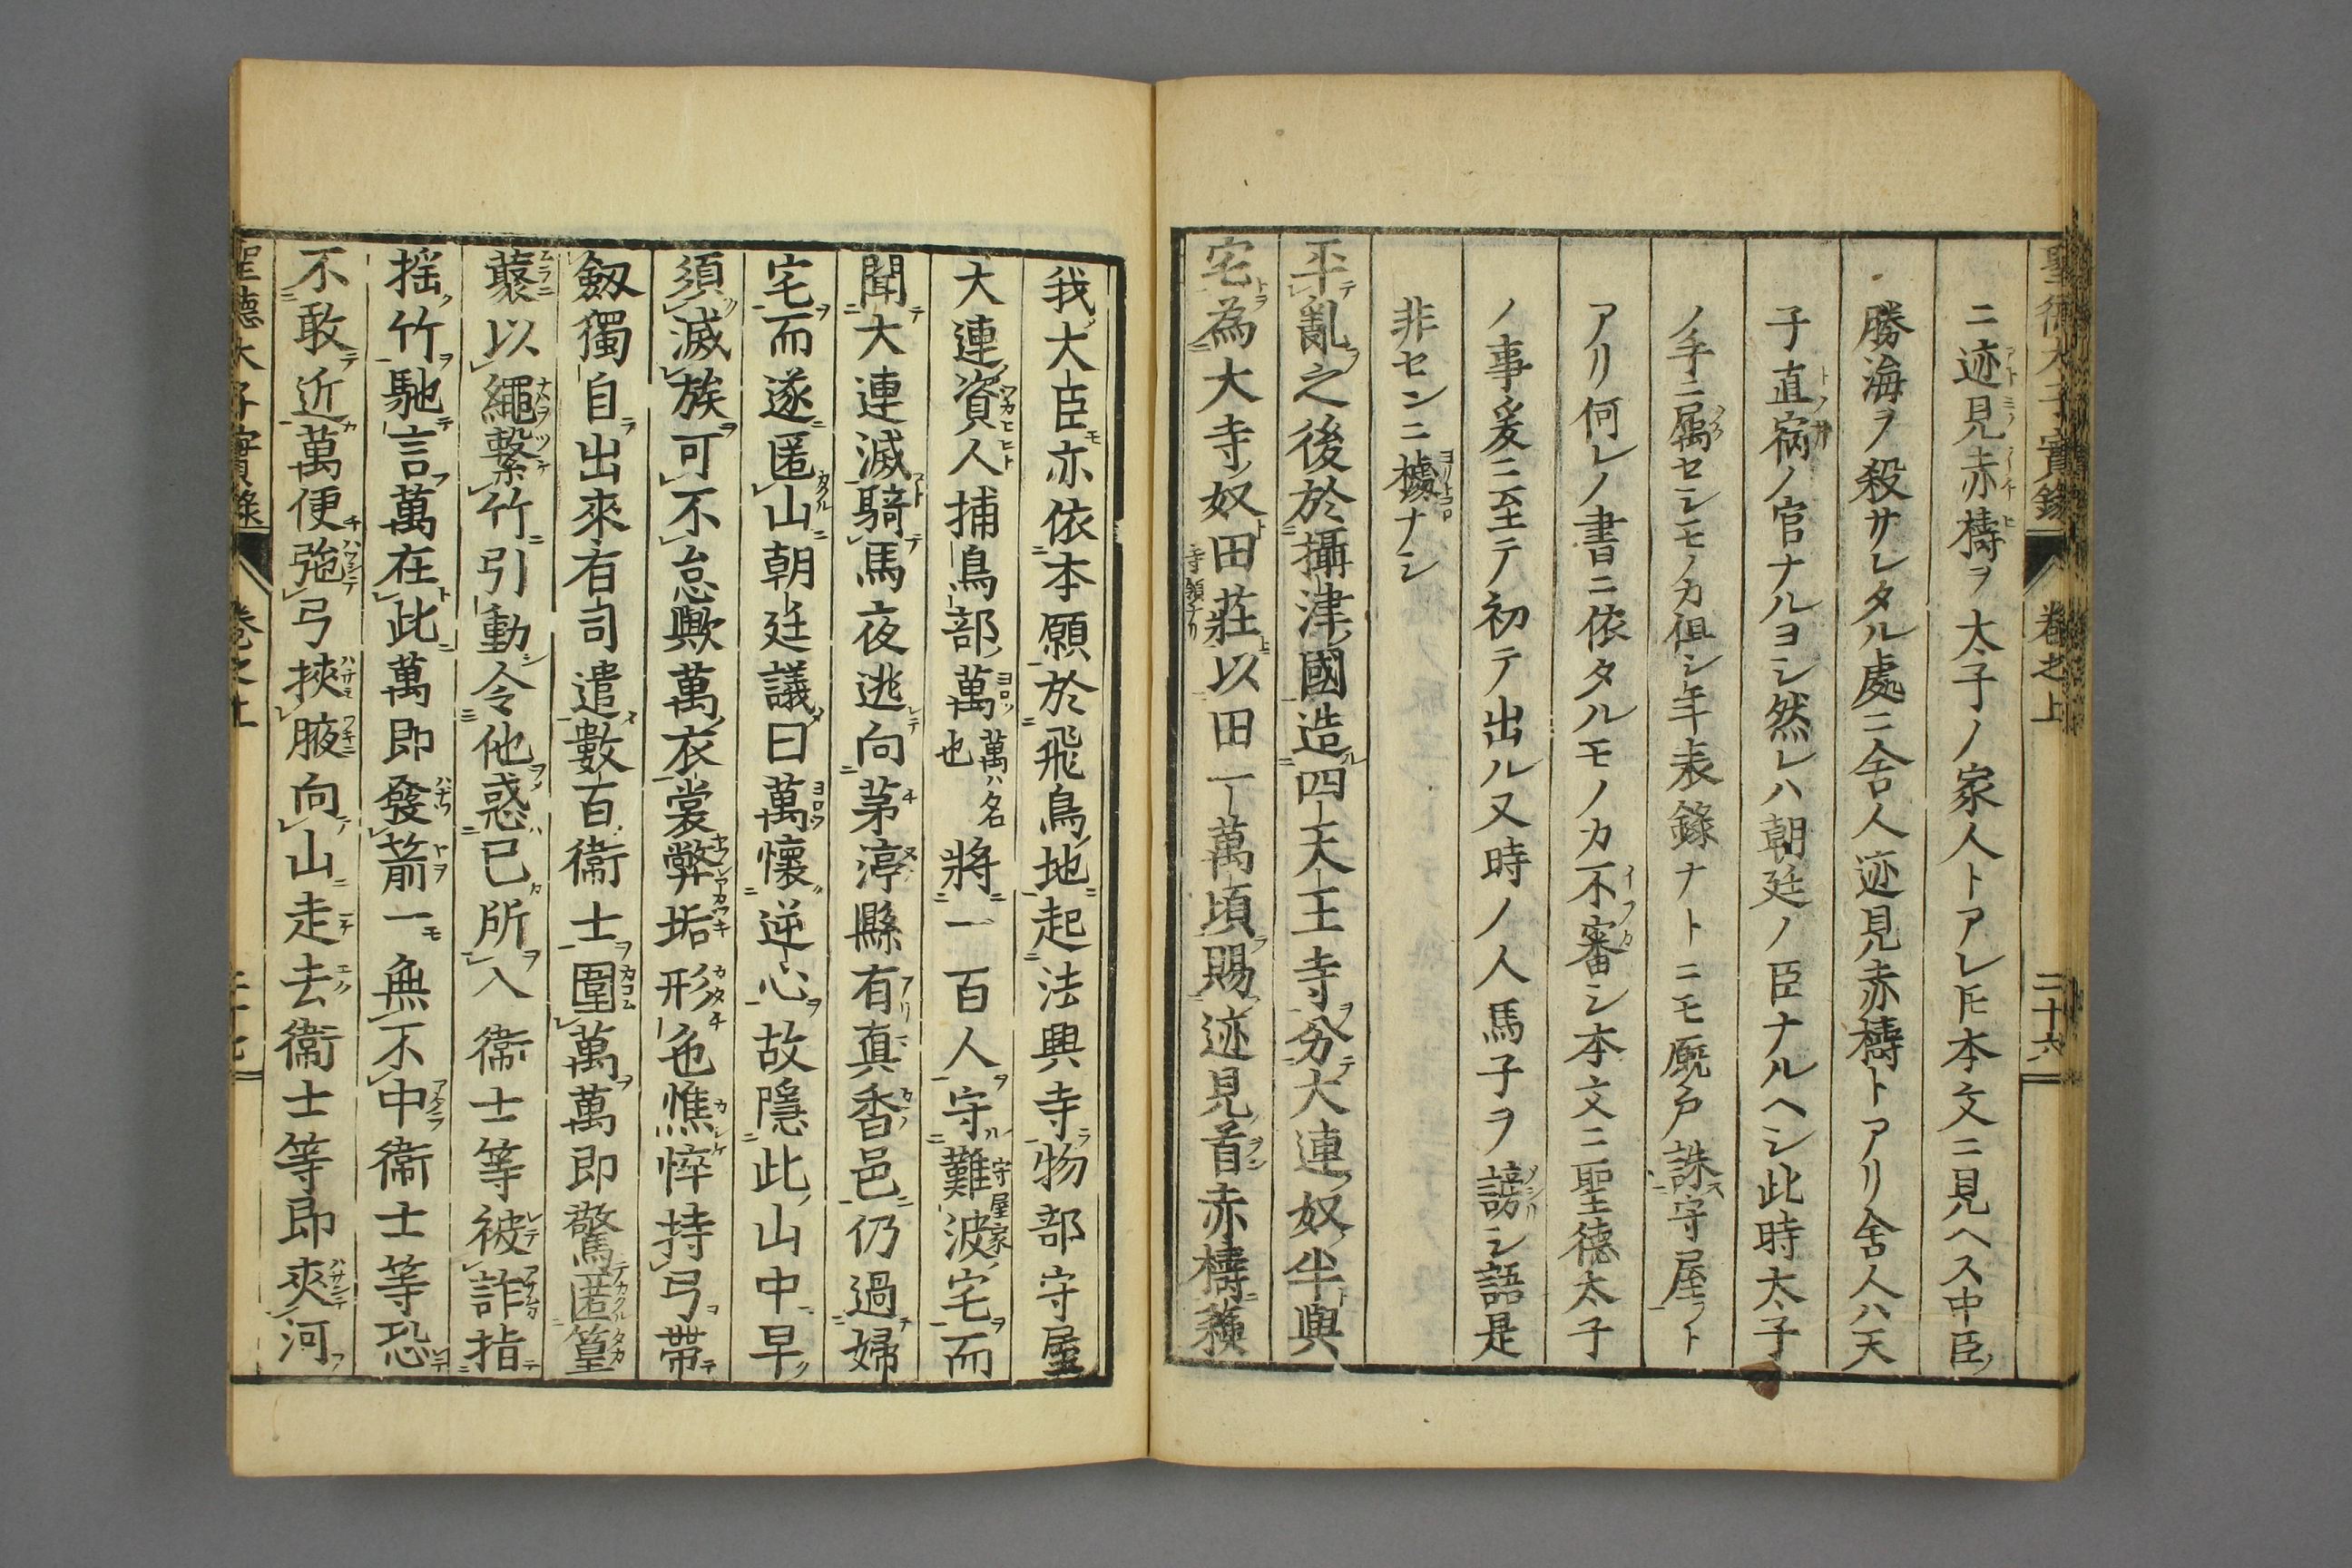 聖德太子實錄 卷之上 二十六
ニ迹見赤檮ヲ太子ノ家人トアレ𪜈本文ニ見ヘス中臣
勝海ヲ殺サレタル處ニ舍人迹見赤檮トアリ舍人ハ天
子直宿ノ官ナルヨシ然レハ朝廷ノ臣ナルヘシ此時太子
ノ手ニ属セシモノカ但シ年表錄ナトニモ厩戸誅守屋ヲト
アリ何レノ書ニ依タルモノカ不審シ本文ニ聖德太子
ノ事爰ニ至テ初テ出ル又時ノ人馬子ヲ謗シ語是
非センニ據ナシ
平亂之後於攝津國造四天王寺分大連奴半與
宅為大寺奴田莊寺領ナリ以田一萬頃賜迹見首赤檮蘓
我大臣亦依本願於飛鳥地起法興寺物部守屋
大連資人捕鳥部萬萬ハ名也將一百人守難波守屋家宅而
聞大連滅騎馬夜逃向茅渟縣有真香邑仍過婦
宅而遂匿山朝廷議曰萬懷逆心故隱此山中早
須滅族可不怠歟萬衣裳弊垢形色憔悴持弓帶
劔獨自出來有司遣數百衞士圍萬萬即驚匿篁
藂以繩繫竹引動令他惑己所入衞士等被詐指
揺竹馳言萬在此萬即發箭一無不中衞士等恐
不敢近萬便弛弓挾腋向山走去衞士等即夾河
聖德太子實錄 卷之上